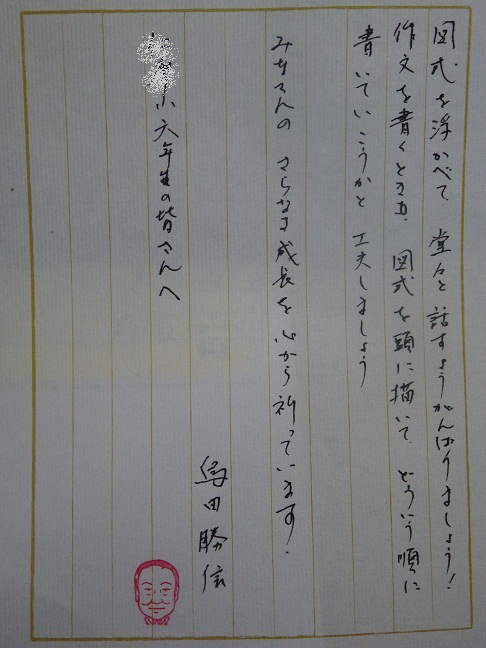 図式を浮かべて、堂々と話すようがんばりましょう!
作文を書くときも、図式を頭に描いて、どういう順に
書いていこうかと工夫しましょう
みなさんの さらなる成長を心から祈っています!
島田勝信
小六年生の皆さんへ